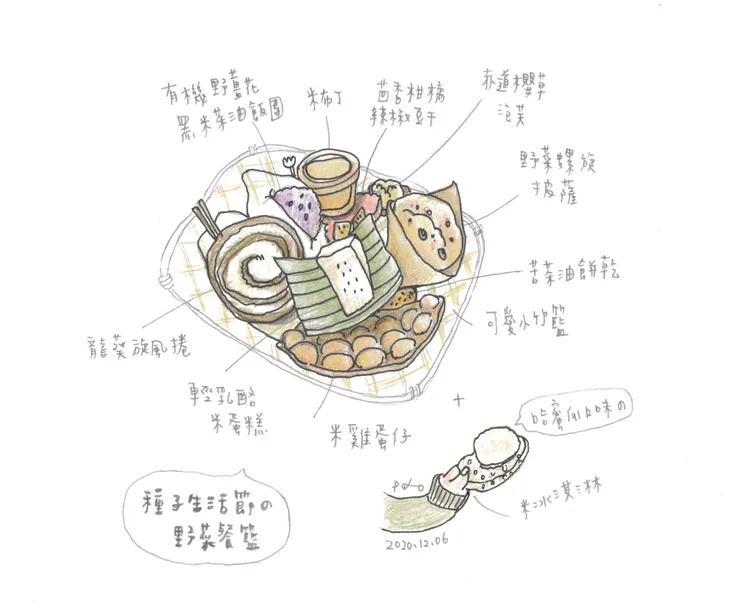 有機野薑花
黑米菜油飯團
米布丁
茴香柑橘
辣椒豆干
赤道櫻草
泡芙
野菜螺旋
披薩
苦菜油餅乾
可愛小竹籃
龍葵旋風捲
輕乳酪
米蛋糕
米雞蛋仔
+
哈蜜瓜口味の
米冰淇淋
2020.12.06
種子生活節の
野菜餐籃